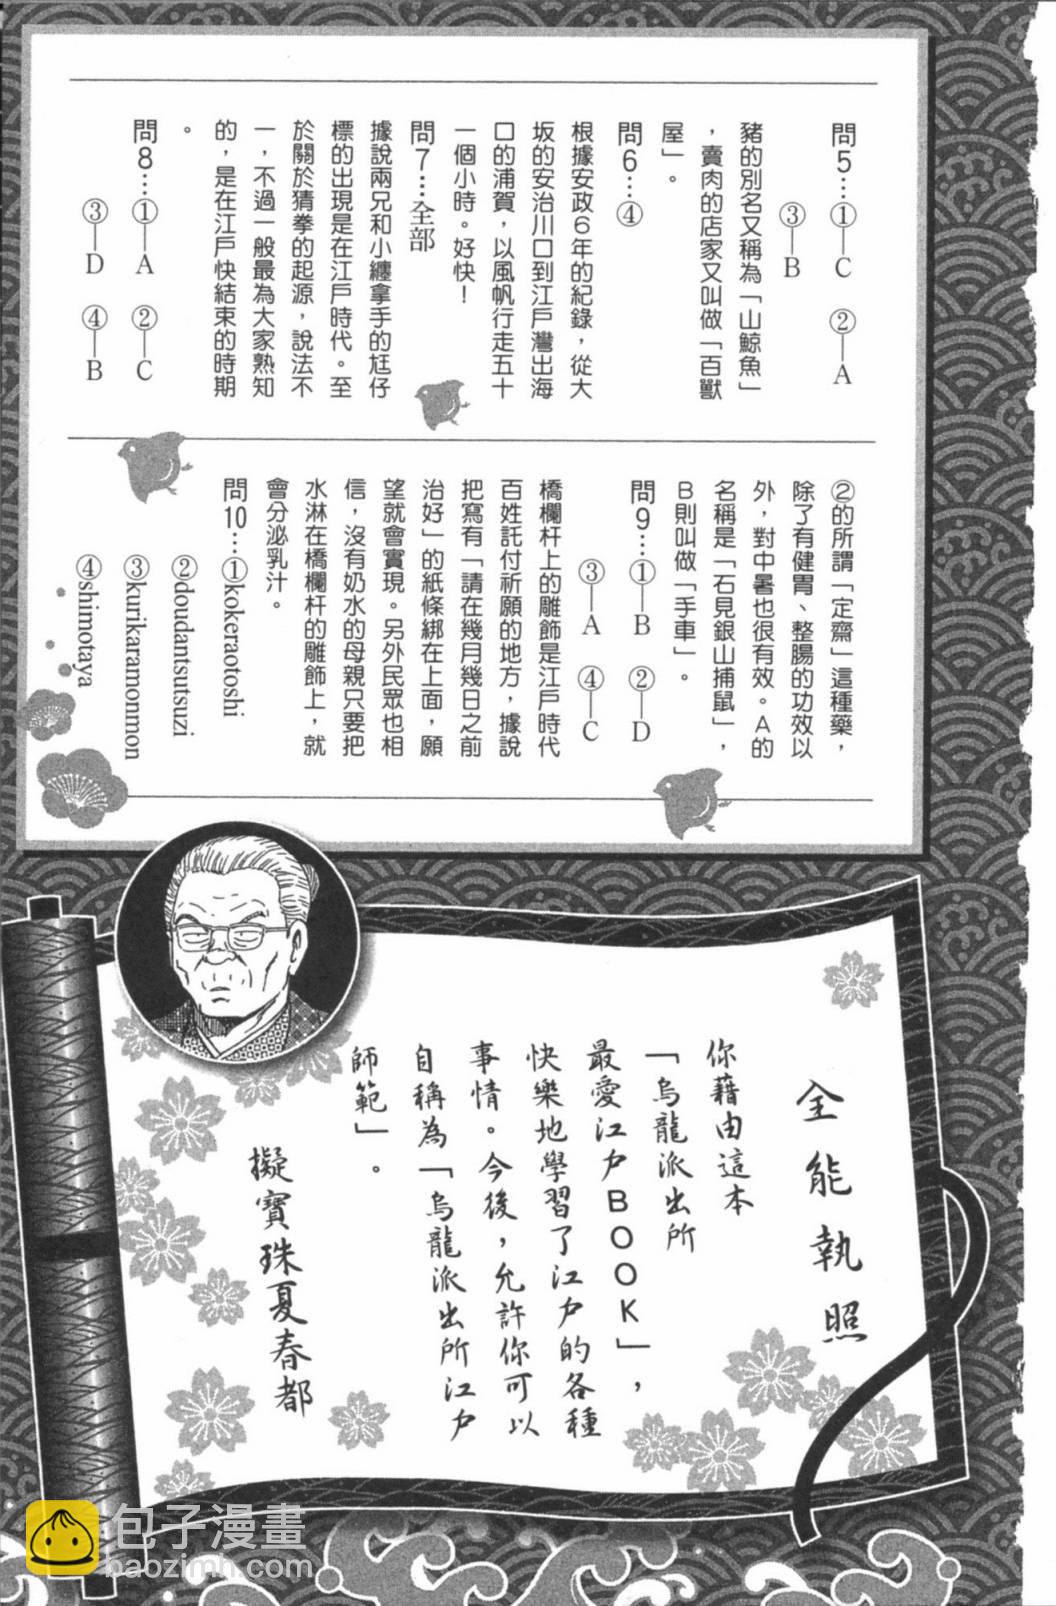 問5…①─C　②─A
③─B
豬的別名又稱為「山鯨魚」
，賣肉的店家又叫做「百獸
屋」。
問6…④
根據安政6年的紀錄，從大
坂的安治川口到江戶灣出海
口的浦賀，以風帆行走五十
一個小時。好快！
問7…全部
據說兩兄和小纏拿手的尪仔
標的出現是在江戶時代。至
於關於猜拳的起源，說法不
一，不過一般最為大家熟知
的，是在江戶快結束的時期
。
問8…①─A　②─C
③─D　④─B
②的所謂「定齋」這種藥，
除了有健胃、整腸的功效以
外，對中暑也很有效。A的
名稱是「石見銀山捕鼠」，
B則叫做「手車」。
問9…①─B　②─D
③─A　④─C
橋欄杆上的雕飾是江戶時代
百姓託付祈願的地方，據說
把寫有「請在幾月幾日之前
治好」的紙條綁在上面，願
望就會實現。另外民眾也相
信，沒有奶水的母親只要把
水淋在橋欄杆的雕飾上，就
會分泌乳汁。
問10…①kokeraotoshi
②doudantsutsuzi
③kurikaramonmon
④shimotaya
全能執照
你藉由這本
「烏龍派出所
最愛江戶BOOK」，
快樂地學習了江戶的各種
事情。今後，允許你可以
自稱為「烏龍派出所江戶
師範」。
擬寶珠夏春都
包子漫畫
baozimh.com